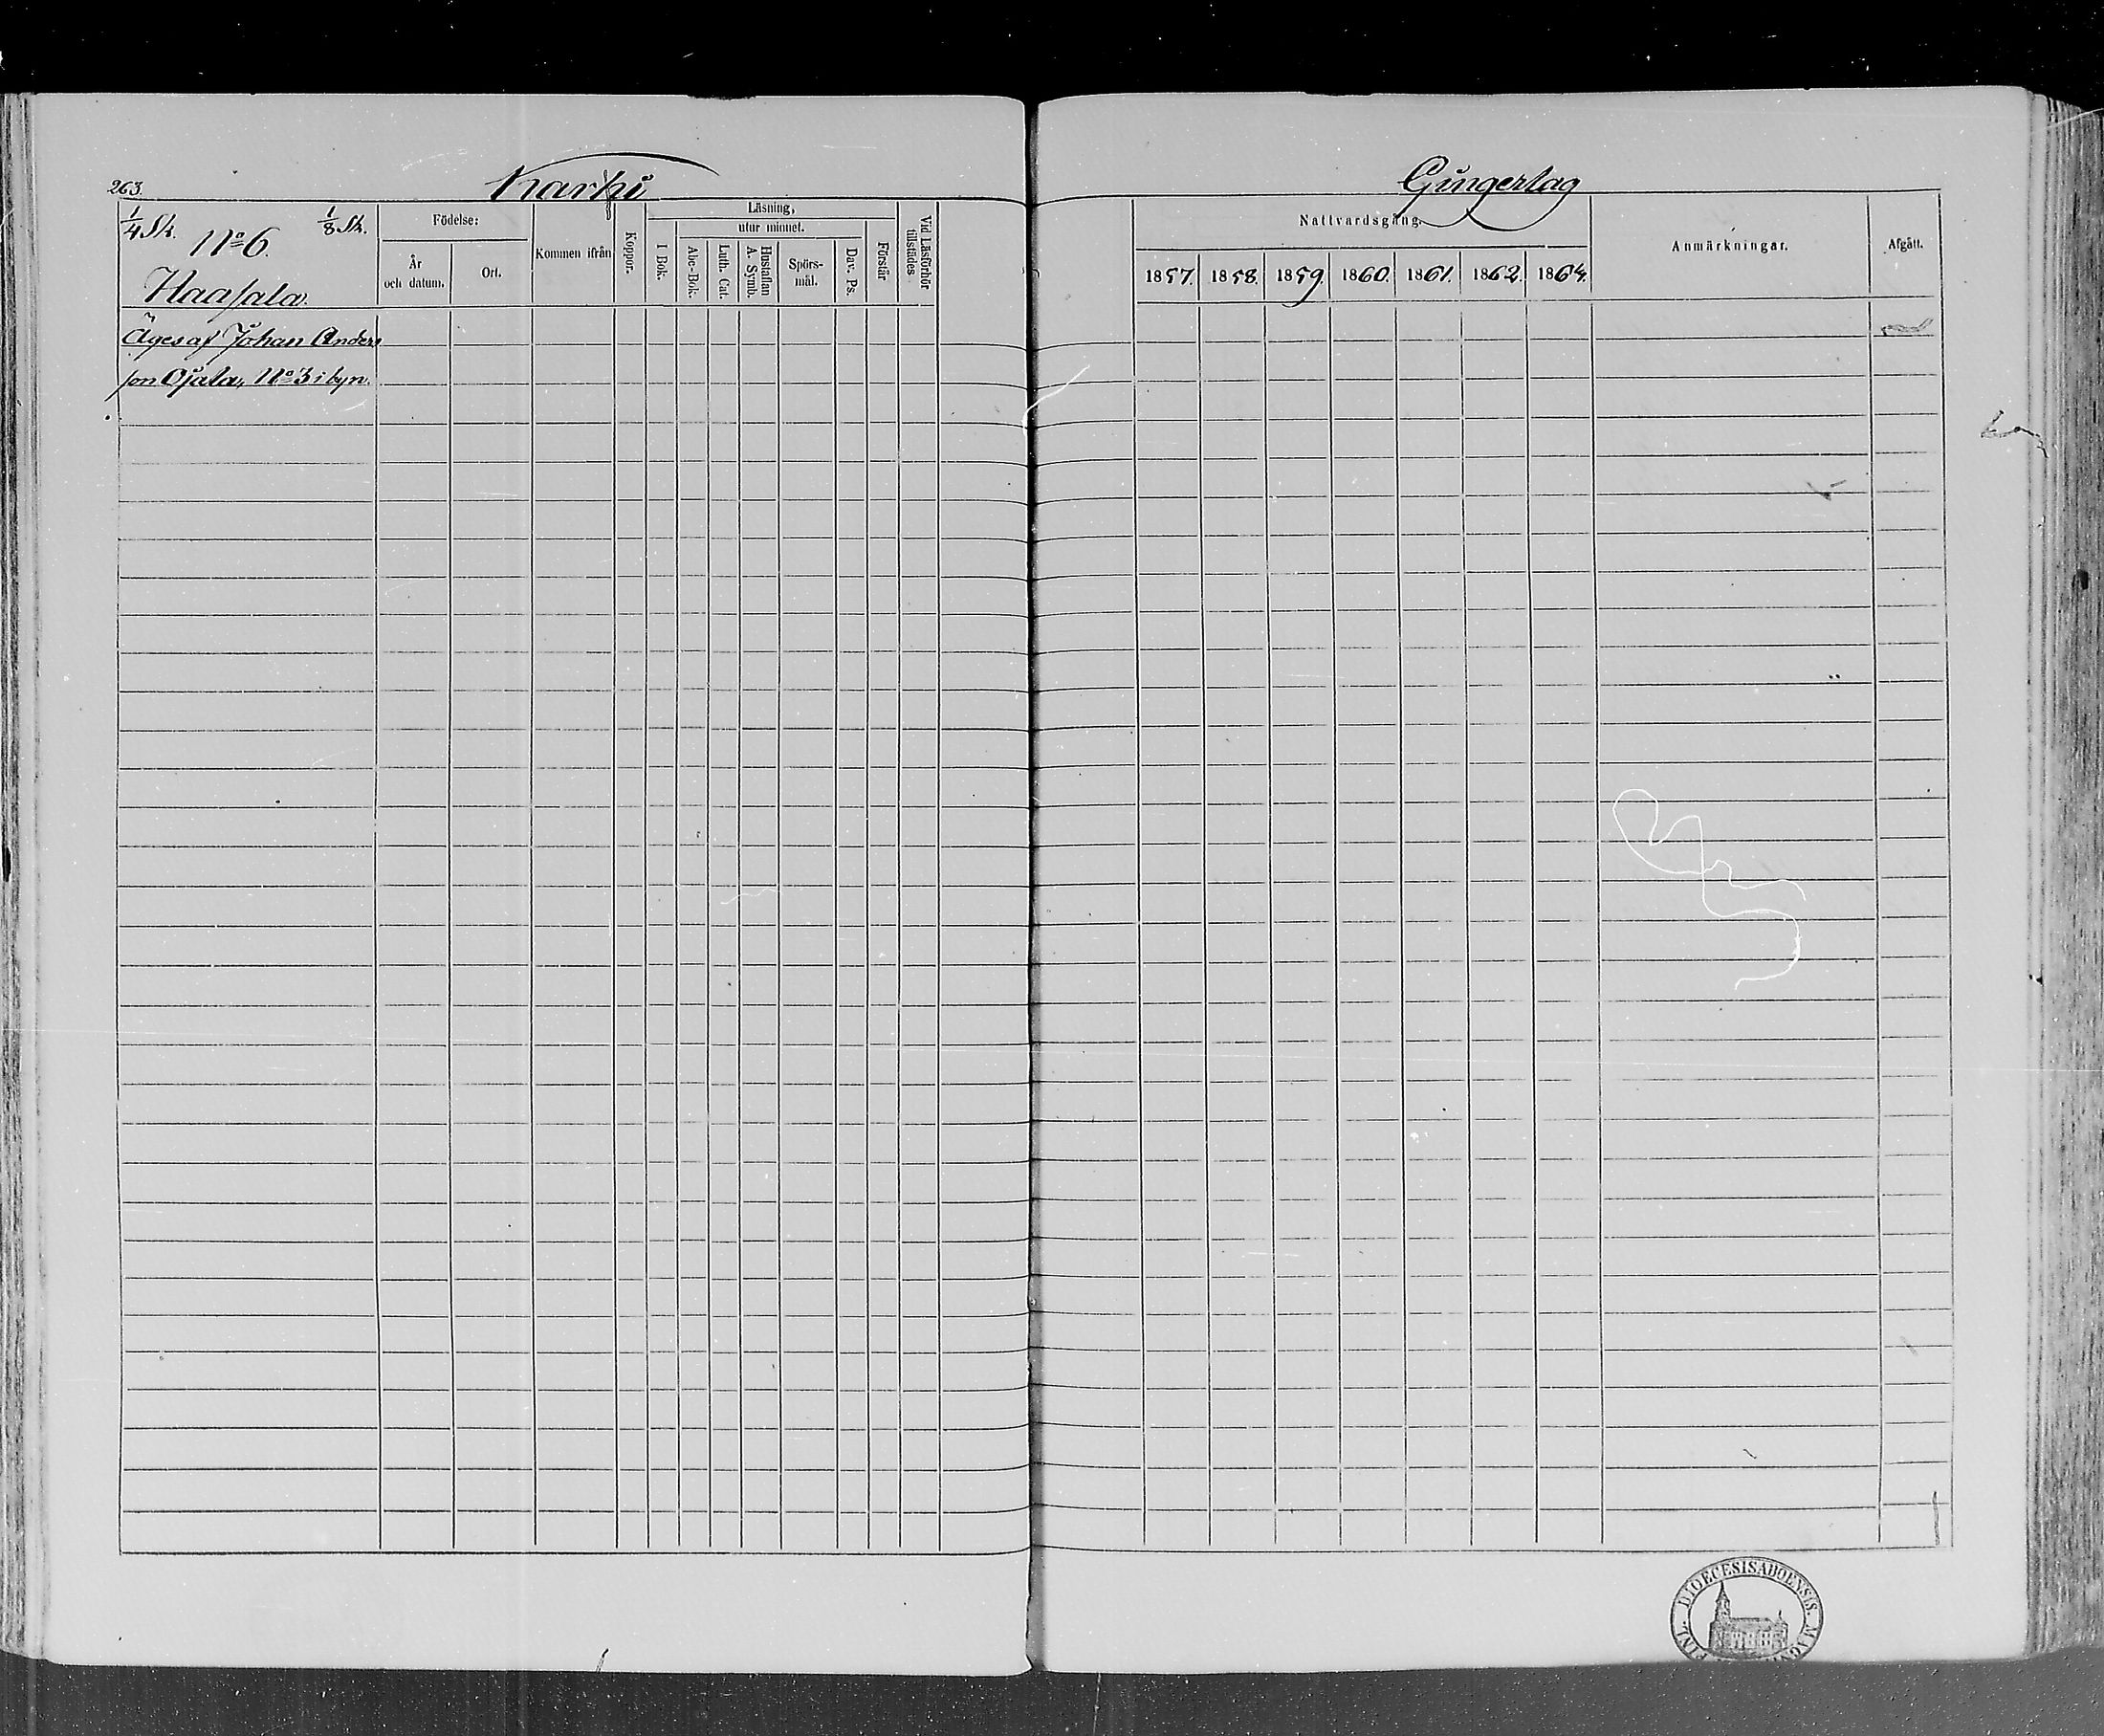 263.
Karhi
1/4 Sk. 1/8 Sk.
No 6.
Haasala.
Födelse:
År
och datum.
Ort.
Kommen ifrån
Koppor.
Läsning,
utur minnet.
I Bok.
Abc-Bok.
Luth. Cat.
Hustaflan
A. Symb.
Spörs-
mål.
Dav. Ps.
Förstår
Vid Läsförhör
tillstädes
Äges af Johan Anders
son Ojala, No 3 i byn.
Gingertag
Nattvardsgång.
1857. 1858. 1859. 1860. 1861. 1862. 1864.
Anmärkningar.
Afgått.
DIOECESIS ABOENSIS